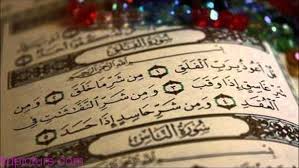 سُورَةُ الْفَلَقِ
قُلْ أَعُوذُ بِرَبِّ الْفَلَقِ ١ مِن شَرِّ مَا خَلَقَ ٢ وَمِن
شَرِّ غَاسِقٍ إِذَا وَقَبَ ٣ وَمِن شَرِّ النَّفَّاثَاتِ فِي
الْعُقَدِ ٤ وَمِن شَرِّ حَاسِدٍ إِذَا حَسَدَ ٥
سُورَةُ النَّاسِ